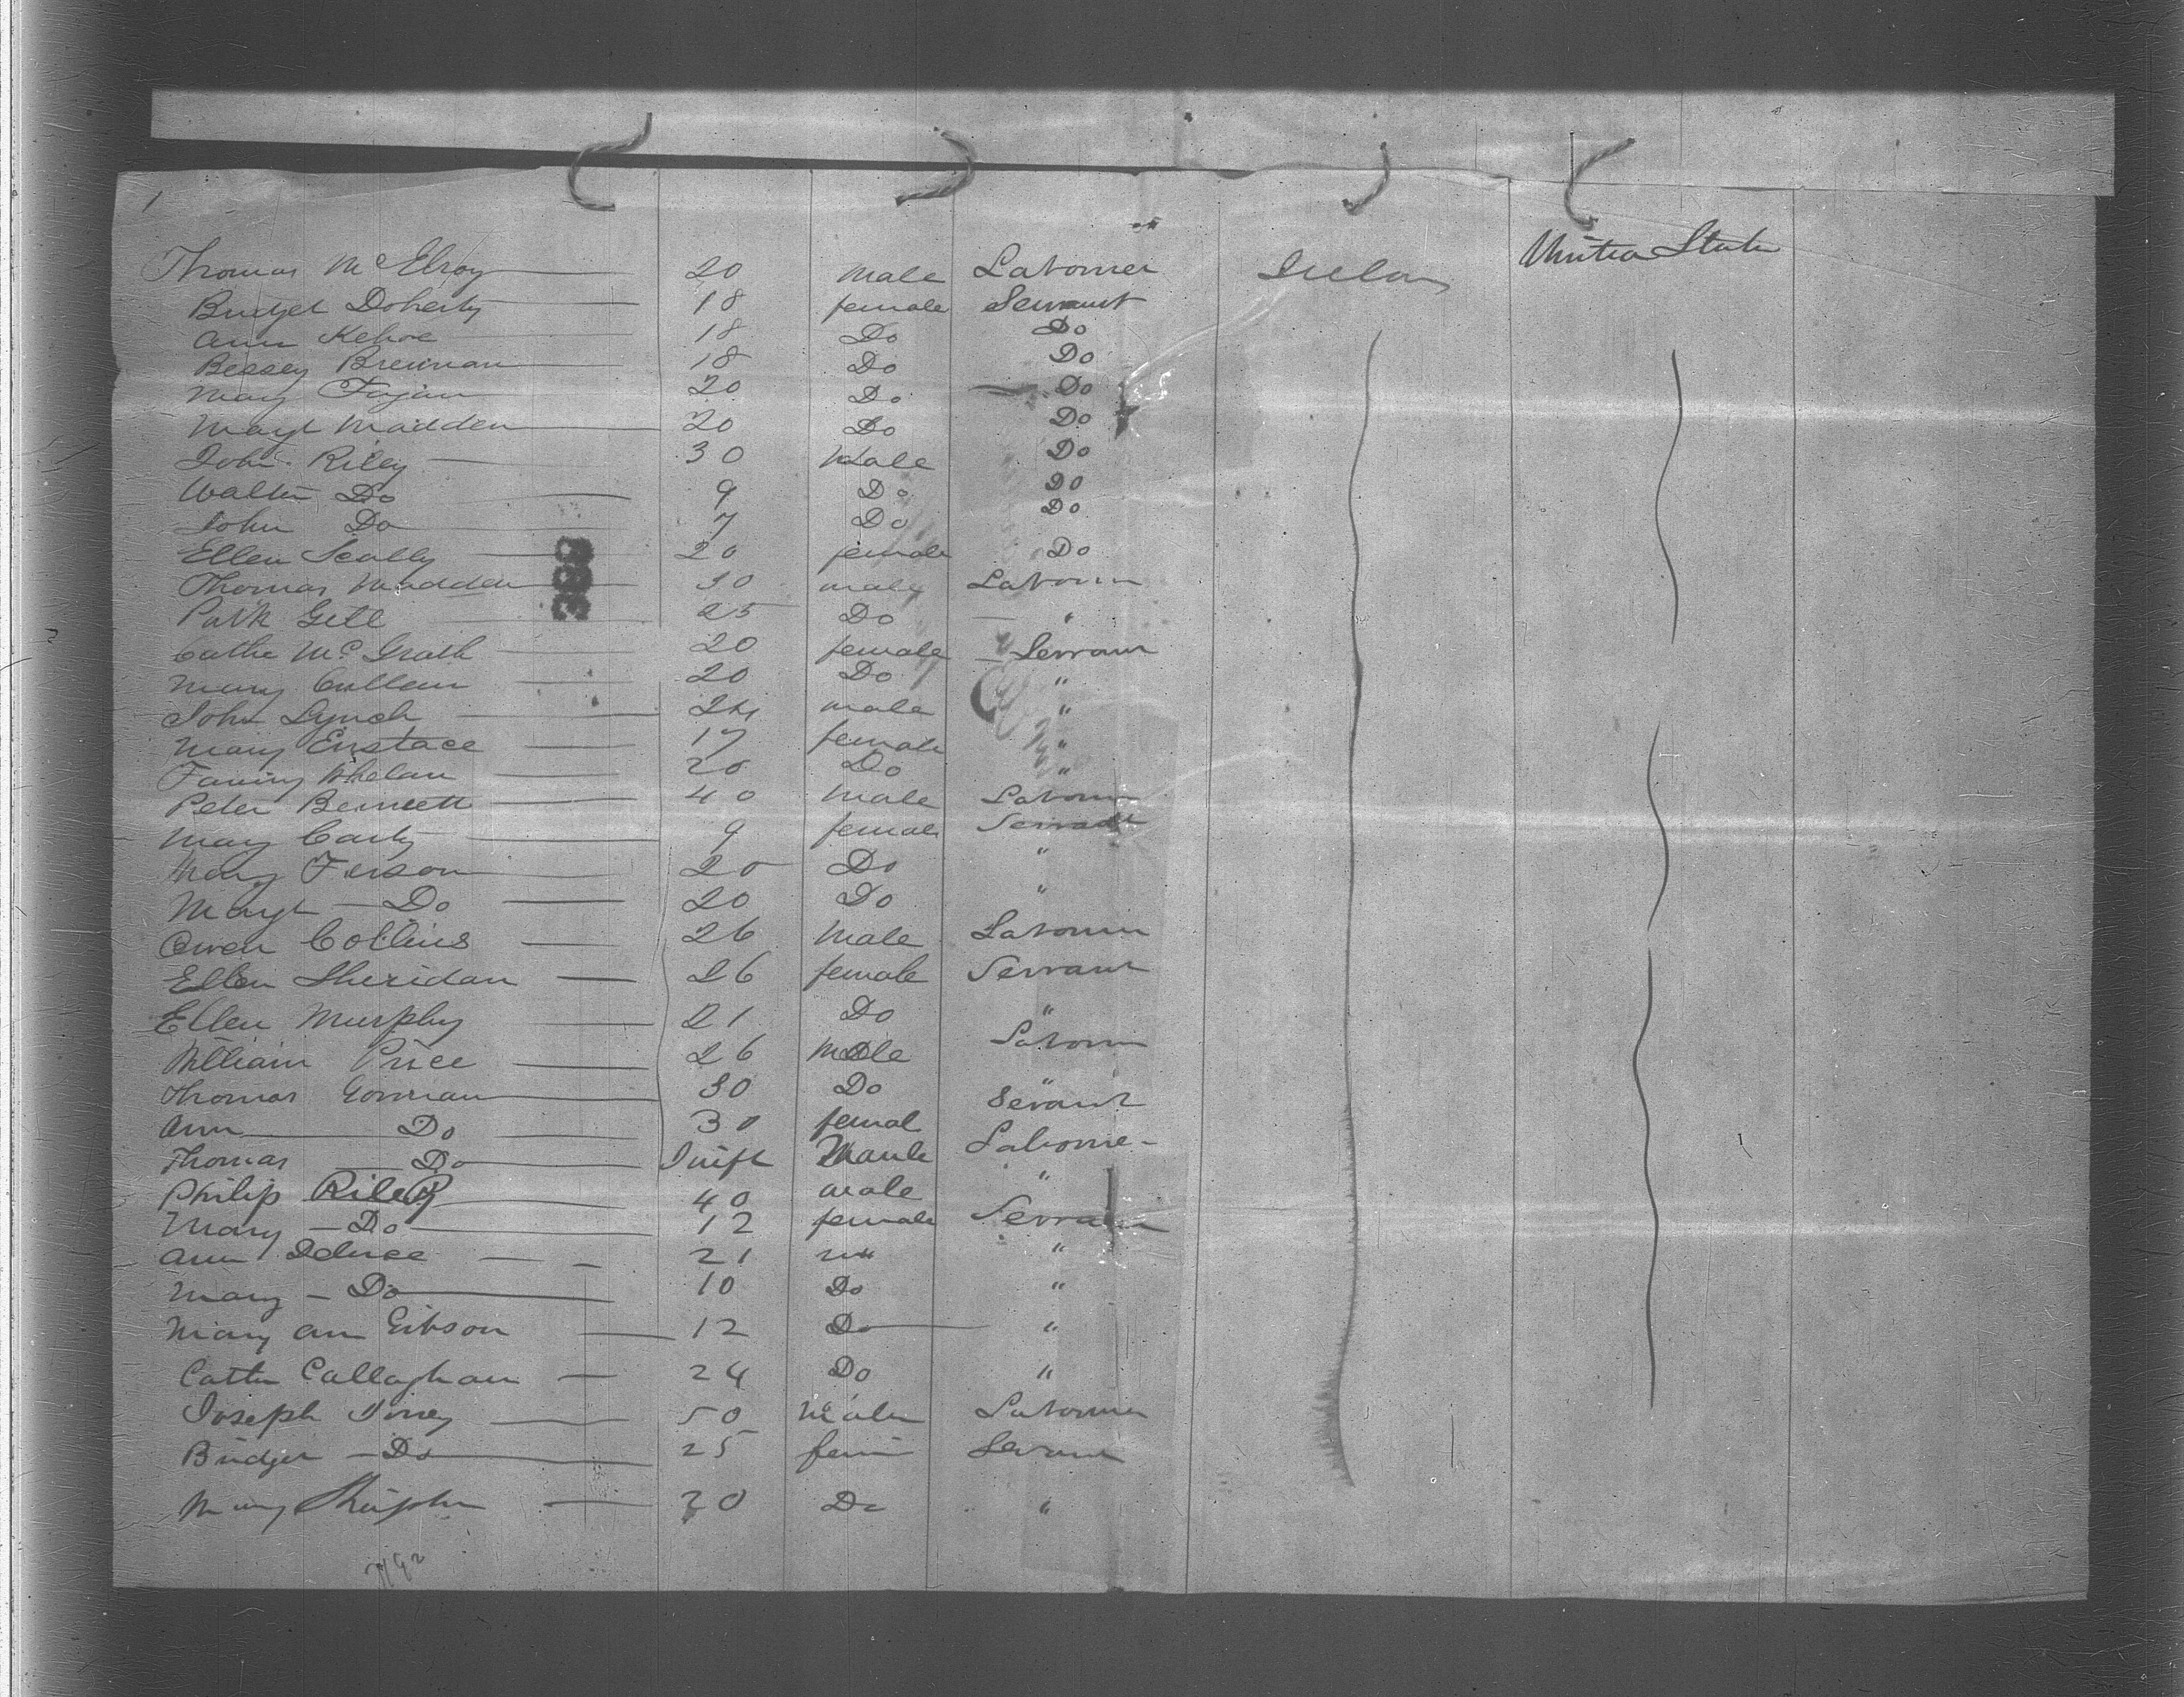 Thomas McElroy 20 male Labourer Irelan United State
Bridget Doherty 18 female Servant
Ann Kehoe 18 Do Do
Bessey Brennan 18 Do Do
Mary Fagan 20 Do Do
Margt Madden 20 Do Do
John Riley 30 Male Do
Walter Do 9 Do Do
John Do 7 Do Do
Ellen Scally 20 female Do
Thomas Madden 30 male Labourer
Patk Gill 25 Do "
Cathe McGrath 20 female Servant
Mary Cullen 20 Do "
John Lynch 24 male "
Mary Eustace 17 female "
Fanny Whelan 20 Do "
Peter Bennett 40 Male Labourer
Mary Carty 9 female Servant
Mary Ferson 20 Do "
Margt Do 20 Do "
Owen Collins 26 Male Labourer
Ellen Sheridan 26 female Servant
Ellen Murphy 21 Do "
William Price 26 Male Labourer
Thomas Gorman 30 Do "
Ann Do 30 femal Servant
Thomas Do Inift Labourer
Philip Riley 40 male "
Mary Do 12 female Servant
Ann 21 "
Mary Do 10 Do "
Mary Ann Gibson 12 Do "
Cathe Callaghan 24 Do "
Joseph 50 Male Labourer
Bridget Do 25 fem Servant
Mary 20 Do "
388